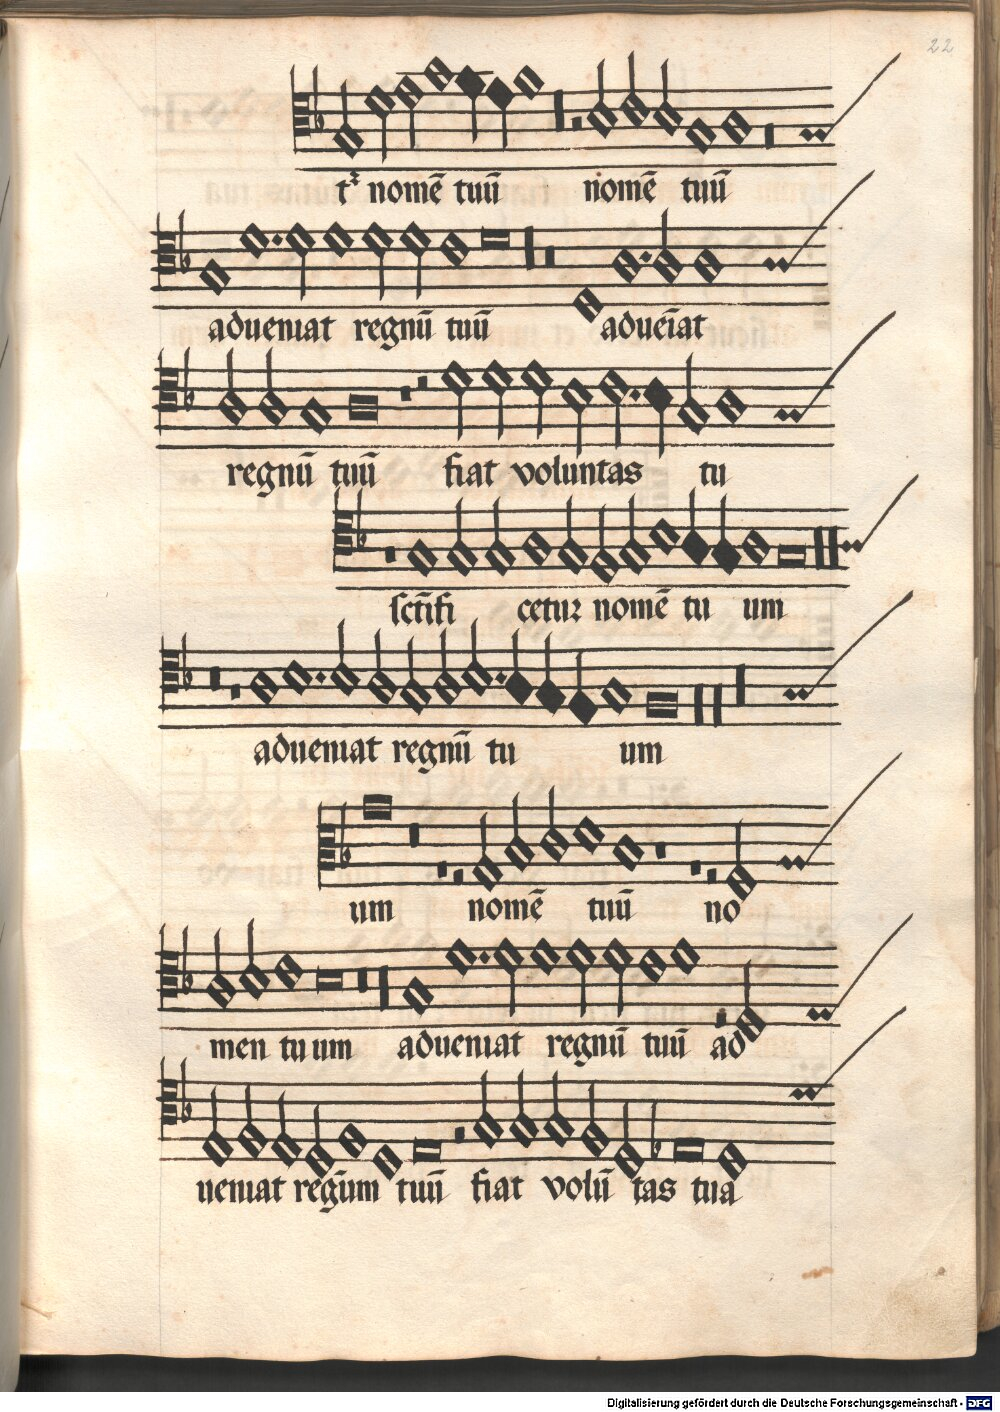 22
tꝛ nomē tuū nomē tuū
adueniat regnū tuū adueīat
regnū tuū fiat voluntas tu
sct̄ifi cetur nomē tu um
adueniat regnū tu um
um nomē tuū no
men tuum adueniat regnū tuū ad
ueniat regnum tuū fiat volū tas tua
Digitalisierung gefördert durch die Deutsche Forschungsgemeinschaft - DFG